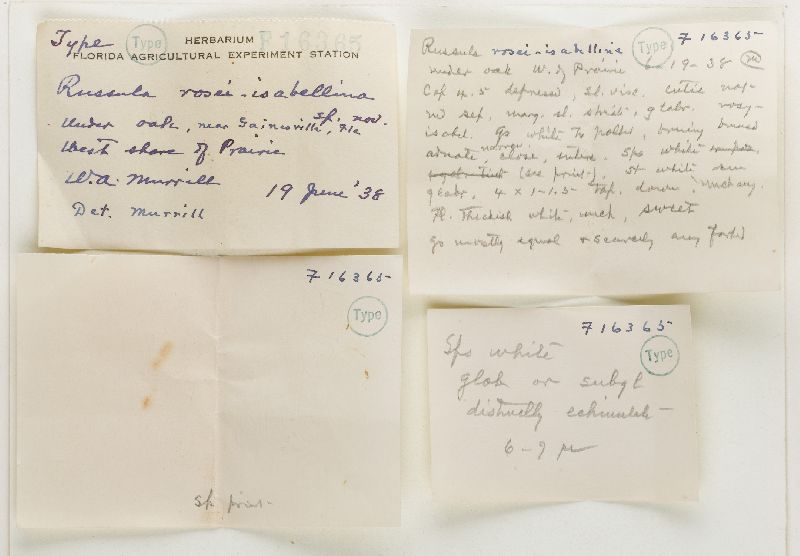 Type
Type
HERBARIUM F16365
FLORIDA AGRICULTURAL EXPERIMENT STATION
Russula rosei-isabellina
sp. nov.
under oak, near Gainesville, Fla
West shore of Prairie
W.A. Murrill 19 June '38
Det. Murrill
F 16365
Type
Russula rosei-isabellina
under oak W. of Prairie 6-19-38
Cap 4.5 depressed, sl. visc. cutic
sep, marg. sl. striate, glabr. rosy-
isabel. gs white
narrow
adnate, close, Sps white
(see print), st white
glabr, 4 x 1-1.5 tap. down unchang.
Fl. thickish white, unch, sweet
gs mostly equal & scarcely any forked
F 16365
Type
sp. print
F 16365
Type
Sps white
glob or subgl
distinctly echinulate
6-7 µ